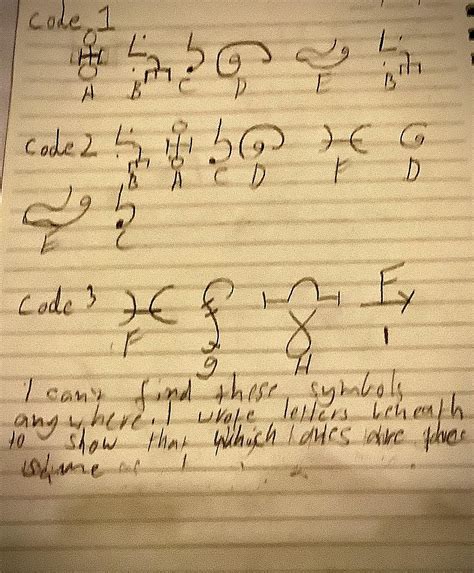 Code 1
A B C D E B
Code 2
B A C D F D
E C
Code 3
F g H I
I can't find these symbols
anywhere. I wrote letters beneath
to show that which ones are the
same as